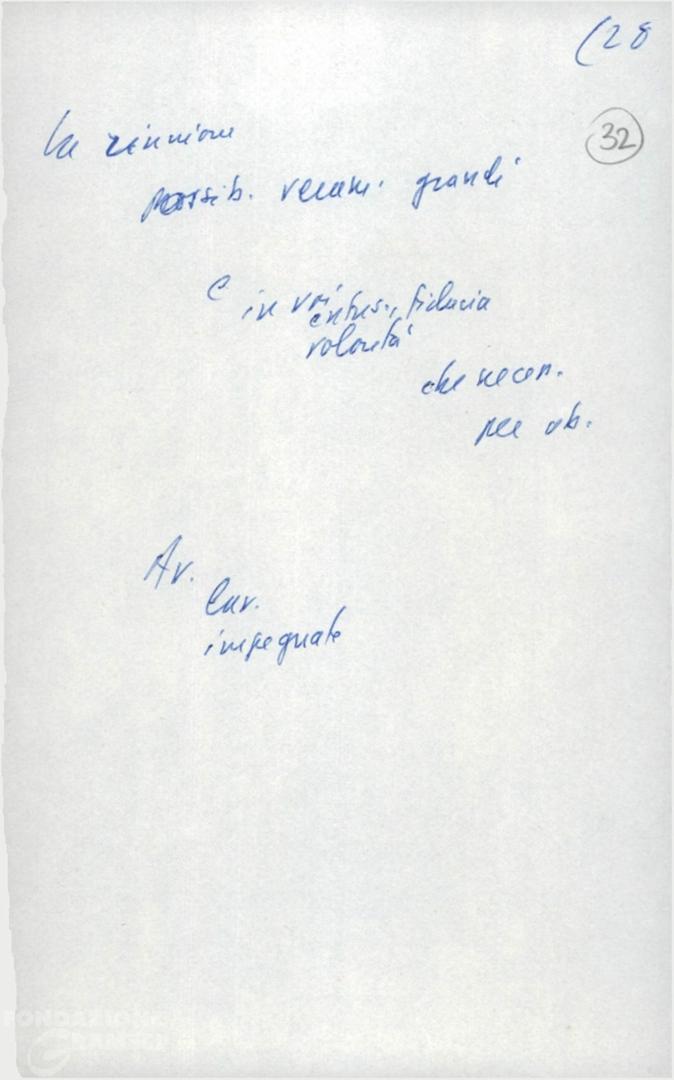 (28
32
La riunione
possib. veram. grandi
C in voi
entus., fiducia
volontà
che necess.
per ob.
Av.
lav.
impegnate
FONDAZIONE
GRAMSCI